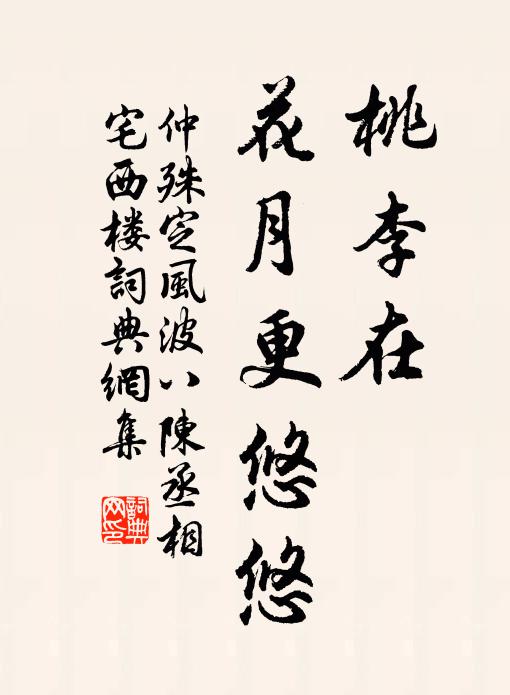 桃李在
花月更悠悠
仲殊定風波八陳丞相
宅西楼詞典網集
詞典網印